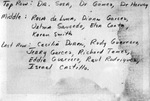 Top Row: Dr. Sosa, Dr. Gomez, Dr. Harvey
Middle: Rosa de Luna, Diana Garcia,
Velma Saucedo, Elva Cantu,
Karen Smith
Last Row: Cecilia Duran, Rudy Guerrero
Jerry Garcia, Richard Torres,
Eddie Guerrero, Raul Rodriguez,
Israel Castillo